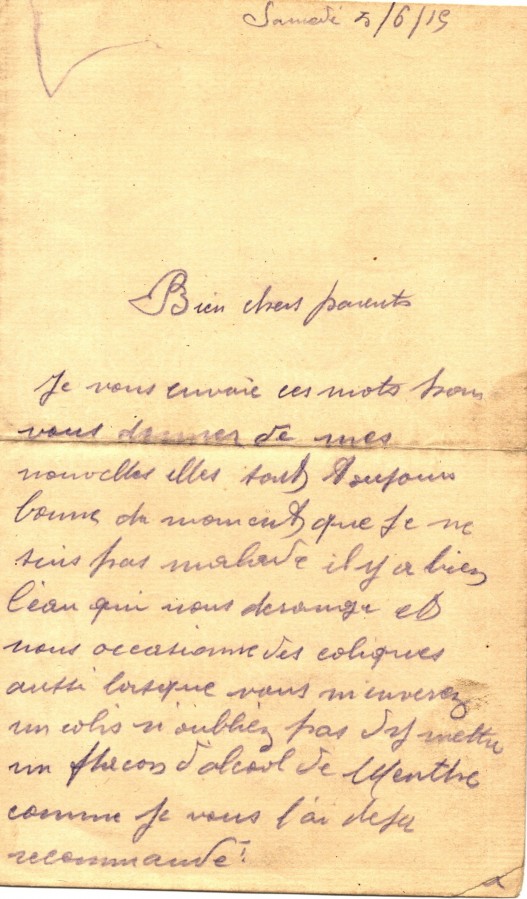 Samedi 5/6/15
Bien chers parents
Je vous envoie ces mots pour
vous donner de mes
nouvelles elles sont toujours
bonne du moment que je ne
suis pas malade il y a bien
l'eau qui nous derange et
nous occasionne des coliques
aussi lorsque vous m'enverez
un colis n'oubliez pas d'y mettre
un flacon d'alcool de Menthe
comme je vous l'ai deja
recommandé.